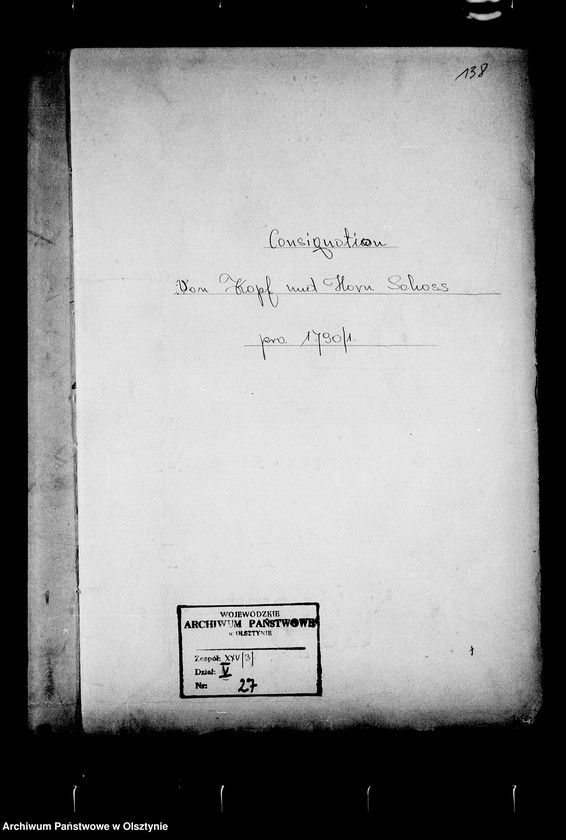 138
Consignation
Von Kopf und Horn Schoss
pro. 1790/1.
WOJEWÓDZKIE
ARCHIWUM PAŃSTWOWE
w OLSZTYNIE
Zespół: XXV/3/
Dział: V
Nr: 27
Archiwum Państwowe w Olsztynie